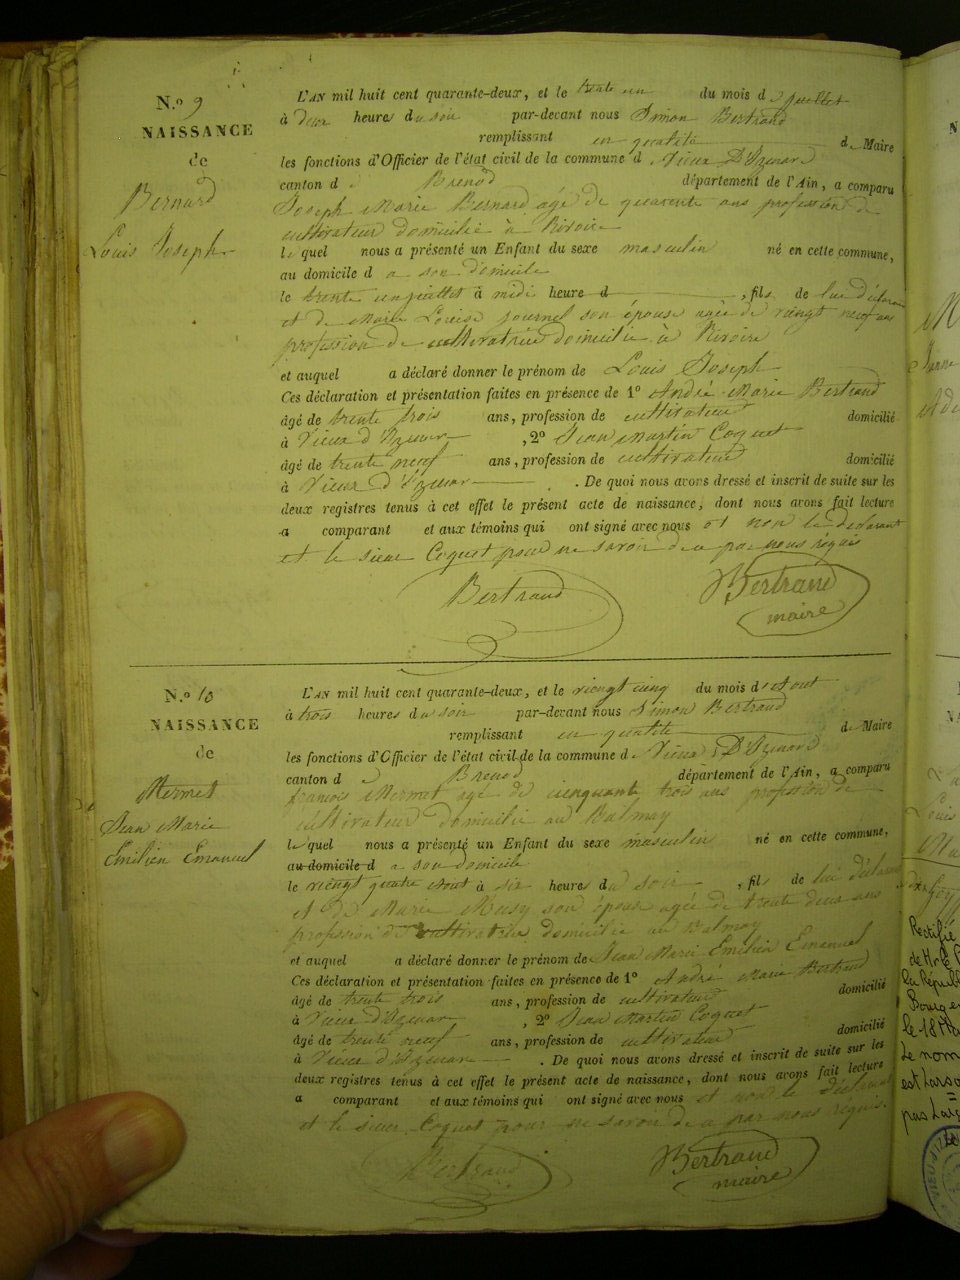 N.º 9
NAISSANCE
de
Bernard
Louis Joseph
L'AN mil huit cent quarante-deux, et le trente un du mois d juillet
à deux heures du soir par-devant nous Simon Bertrand
remplissant en qualité de Maire
les fonctions d'Officier de l'état civil de la commune d Vieux D'Izenave
canton d Brenod département de l'Ain, a comparu
Joseph Marie Bernard agé de quarente ans profession de
cultivateur domicilié à
le quel nous a présenté un Enfant du sexe masculin né en cette commune,
au domicile d a son domicile
le trente un juillet à midi heure d , fils de lui déclarant
et de Marie Louise Journel son épouse agée de vingt neuf ans
profession de cultivatrice domicilié à
et auquel a déclaré donner le prénom de Louis Joseph
Ces déclaration et présentation faites en présence de 1º André Marie Bertrand
âgé de trente trois ans, profession de cultivateur domicilié
à Vieux d'Izenave , 2º Jean Martin Coquet
âgé de trente neuf ans, profession de cultivateur domicilié
à Vieux d'Izenave . De quoi nous avons dressé et inscrit de suite sur les
deux registres tenus à cet effet le présent acte de naissance, dont nous avons fait lecture
a comparant et aux témoins qui ont signé avec nous et non le déclarant
et le sieur Coquet pour ne savoir de a par nous réquis
Bertrand
Bertrand
maire
N.º 10
NAISSANCE
de
Mermet
Jean Marie
Emilien Emanuel
L'AN mil huit cent quarante-deux, et le vingt cinq du mois d'Aout
à trois heures du soir par-devant nous Simon Bertrand
remplissant en qualité de Maire
les fonctions d'Officier de l'état civil de la commune d Vieux D'Izenave
canton d Brenod département de l'Ain, a comparu
françois Mermet agé de cinquante trois ans profession de
cultivateur domicilié au Balmay
le quel nous a présenté un Enfant du sexe masculin né en cette commune,
au domicile d a son domicile
le vingt quatre Aout à six heures du soir , fils de lui déclarant
et de Marie Musy son épouse agée de trente deux ans
profession de cultivatrice domiciliée au Balmay
et auquel a déclaré donner le prénom de Jean Marie Emilien Emanuel
Ces déclaration et présentation faites en présence de 1º André Marie Bertrand
âgé de trente trois ans, profession de cultivateur domicilié
à Vieux d'Izenave , 2º Jean Martin Coquet
âgé de trente neuf ans, profession de cultivateur domicilié
à Vieux d'Izenave . De quoi nous avons dressé et inscrit de suite sur les
deux registres tenus à cet effet le présent acte de naissance, dont nous avons fait lecture
a comparant et aux témoins qui ont signé avec nous et non le déclarant
et le sieur Coquet pour ne savoir de a par nous réquis.
Bertrand
Bertrand
maire
Rectifié
de
la Républ
Bourg en
le 18
Le nom
est
pas